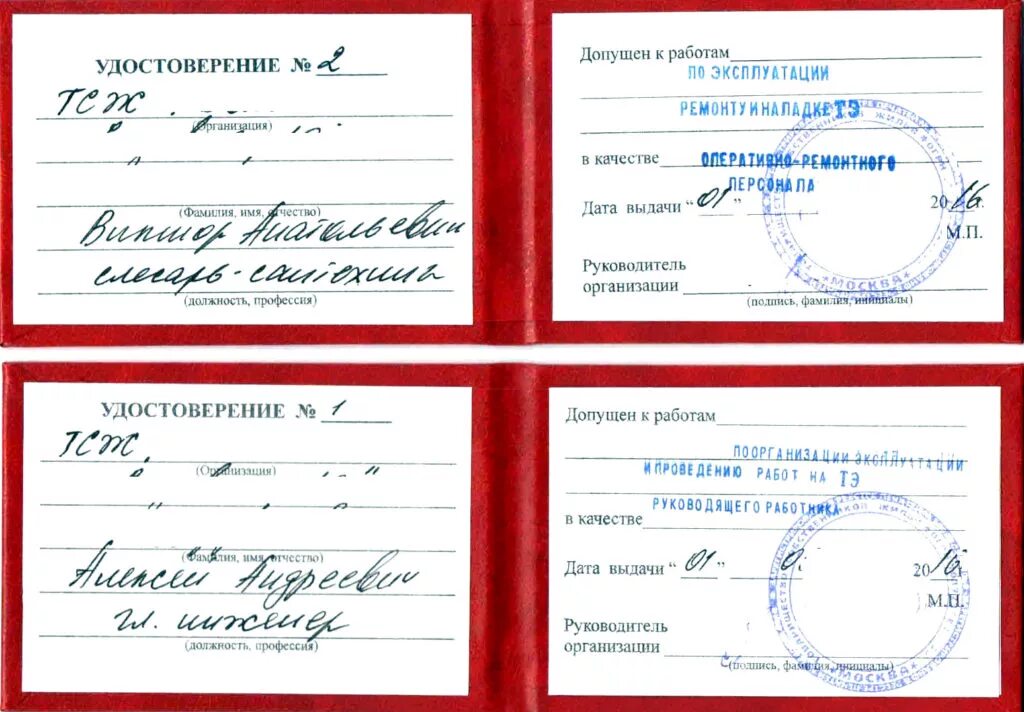 УДОСТОВЕРЕНИЕ № 2
ТСЖ
(Организация)
(Фамилия, имя, отчество)
Виктор Анатольевич
слесарь-сантехник
(должность, профессия)
Допущен к работам
ПО ЭКСПЛУАТАЦИИ
РЕМОНТУ И НАЛАДКЕ ТЭ
в качестве ОПЕРАТИВНО-РЕМОНТНОГО
ПЕРСОНАЛА
Дата выдачи "01" 2016г.
М.П.
Руководитель
организации
(подпись, фамилия, инициалы)
МОСКВА
УДОСТОВЕРЕНИЕ № 1
ТСЖ
(Организация)
(Фамилия, имя, отчество)
Алексей Андреевич
гл. инженер
(должность, профессия)
Допущен к работам
ПО ОРГАНИЗАЦИИ ЭКСПЛУАТАЦИИ
И ПРОВЕДЕНИЮ РАБОТ НА ТЭ
РУКОВОДЯЩЕГО РАБОТНИКА
в качестве
Дата выдачи "01" 0 2016г
М.П.
Руководитель
организации
(подпись, фамилия, инициалы)
МОСКВА